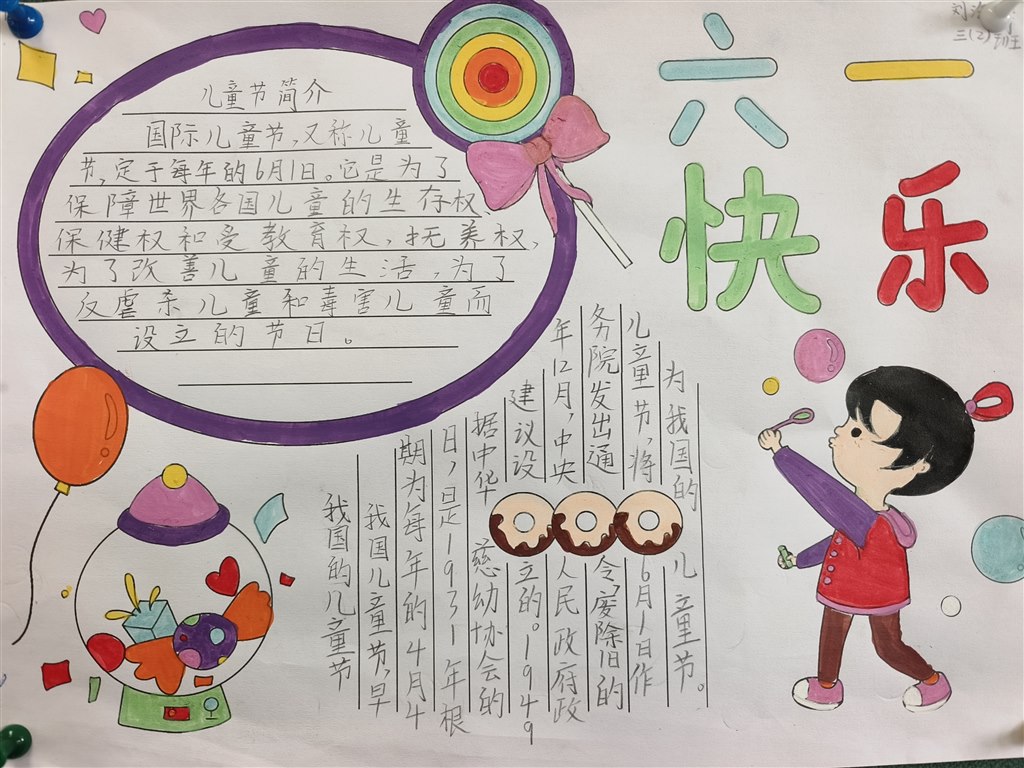 三(2)班
六一
快乐
儿童节简介
国际儿童节,又称儿童
节,定于每年的6月1日。它是为了
保障世界各国儿童的生存权、
保健权和受教育权,抚养权,
为了改善儿童的生活,为了
反虐杀儿童和毒害儿童而
设立的节日。
我国的儿童节
我国儿童节,早
期为每年的4月4
日,是1931年根
据中华慈幼协会的
建议设立的。1949
年12月,中央人民政府政
务院发出通令,废除旧的
儿童节,将6月1日作
为我国的儿童节。